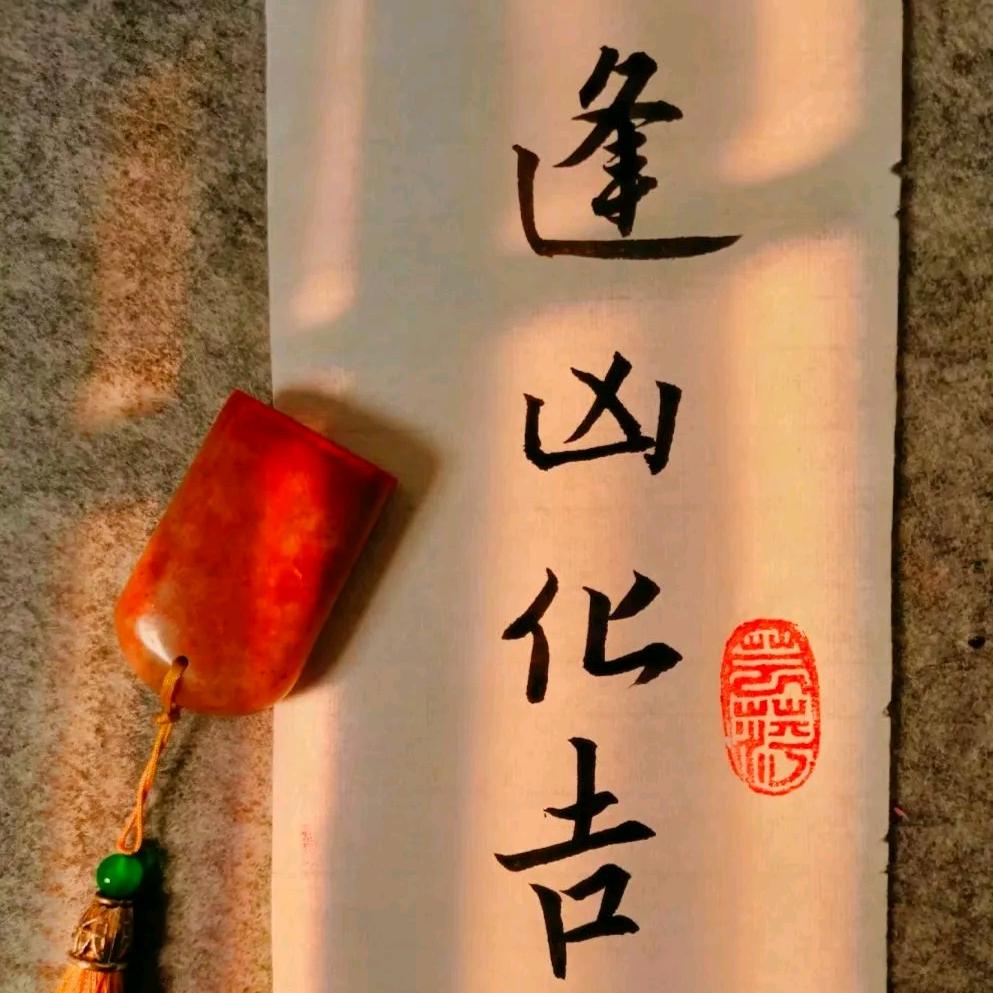 逢凶化吉